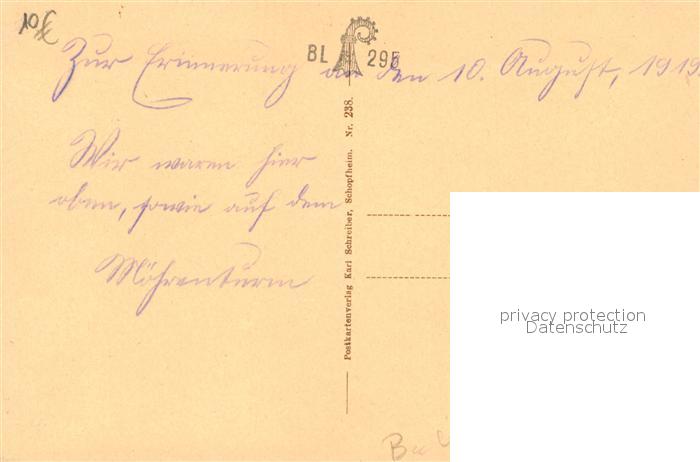 10.-
BL 295
Zur Erinnerung an den 10. August, 1919.
Wir waren hier
oben, sowie auf dem
Möhrenturm
Postkartenverlag Karl Schreiber, Schopfheim. Nr. 238.
privacy protection
Datenschutz